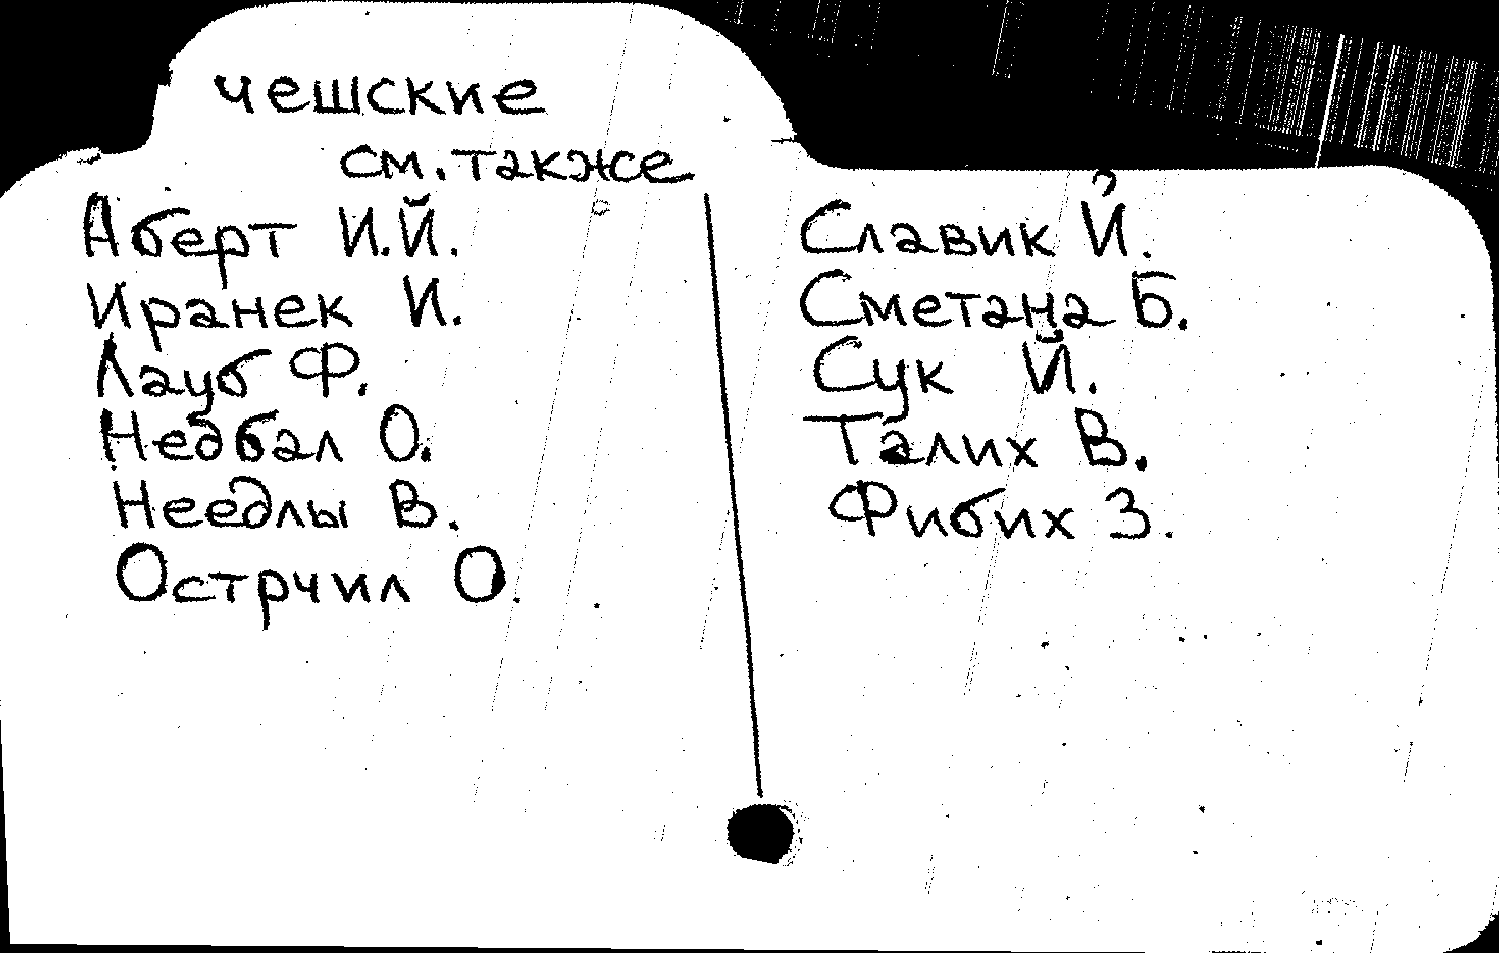 чешские
см. также
Аберт И.Й.
Иранек И.
Лауб Ф.
Недбал О.
Неедлы В.
Острчил О.
Славик Й.
Сметана Б.
Сук Й.
Талих В.
Фибих З.